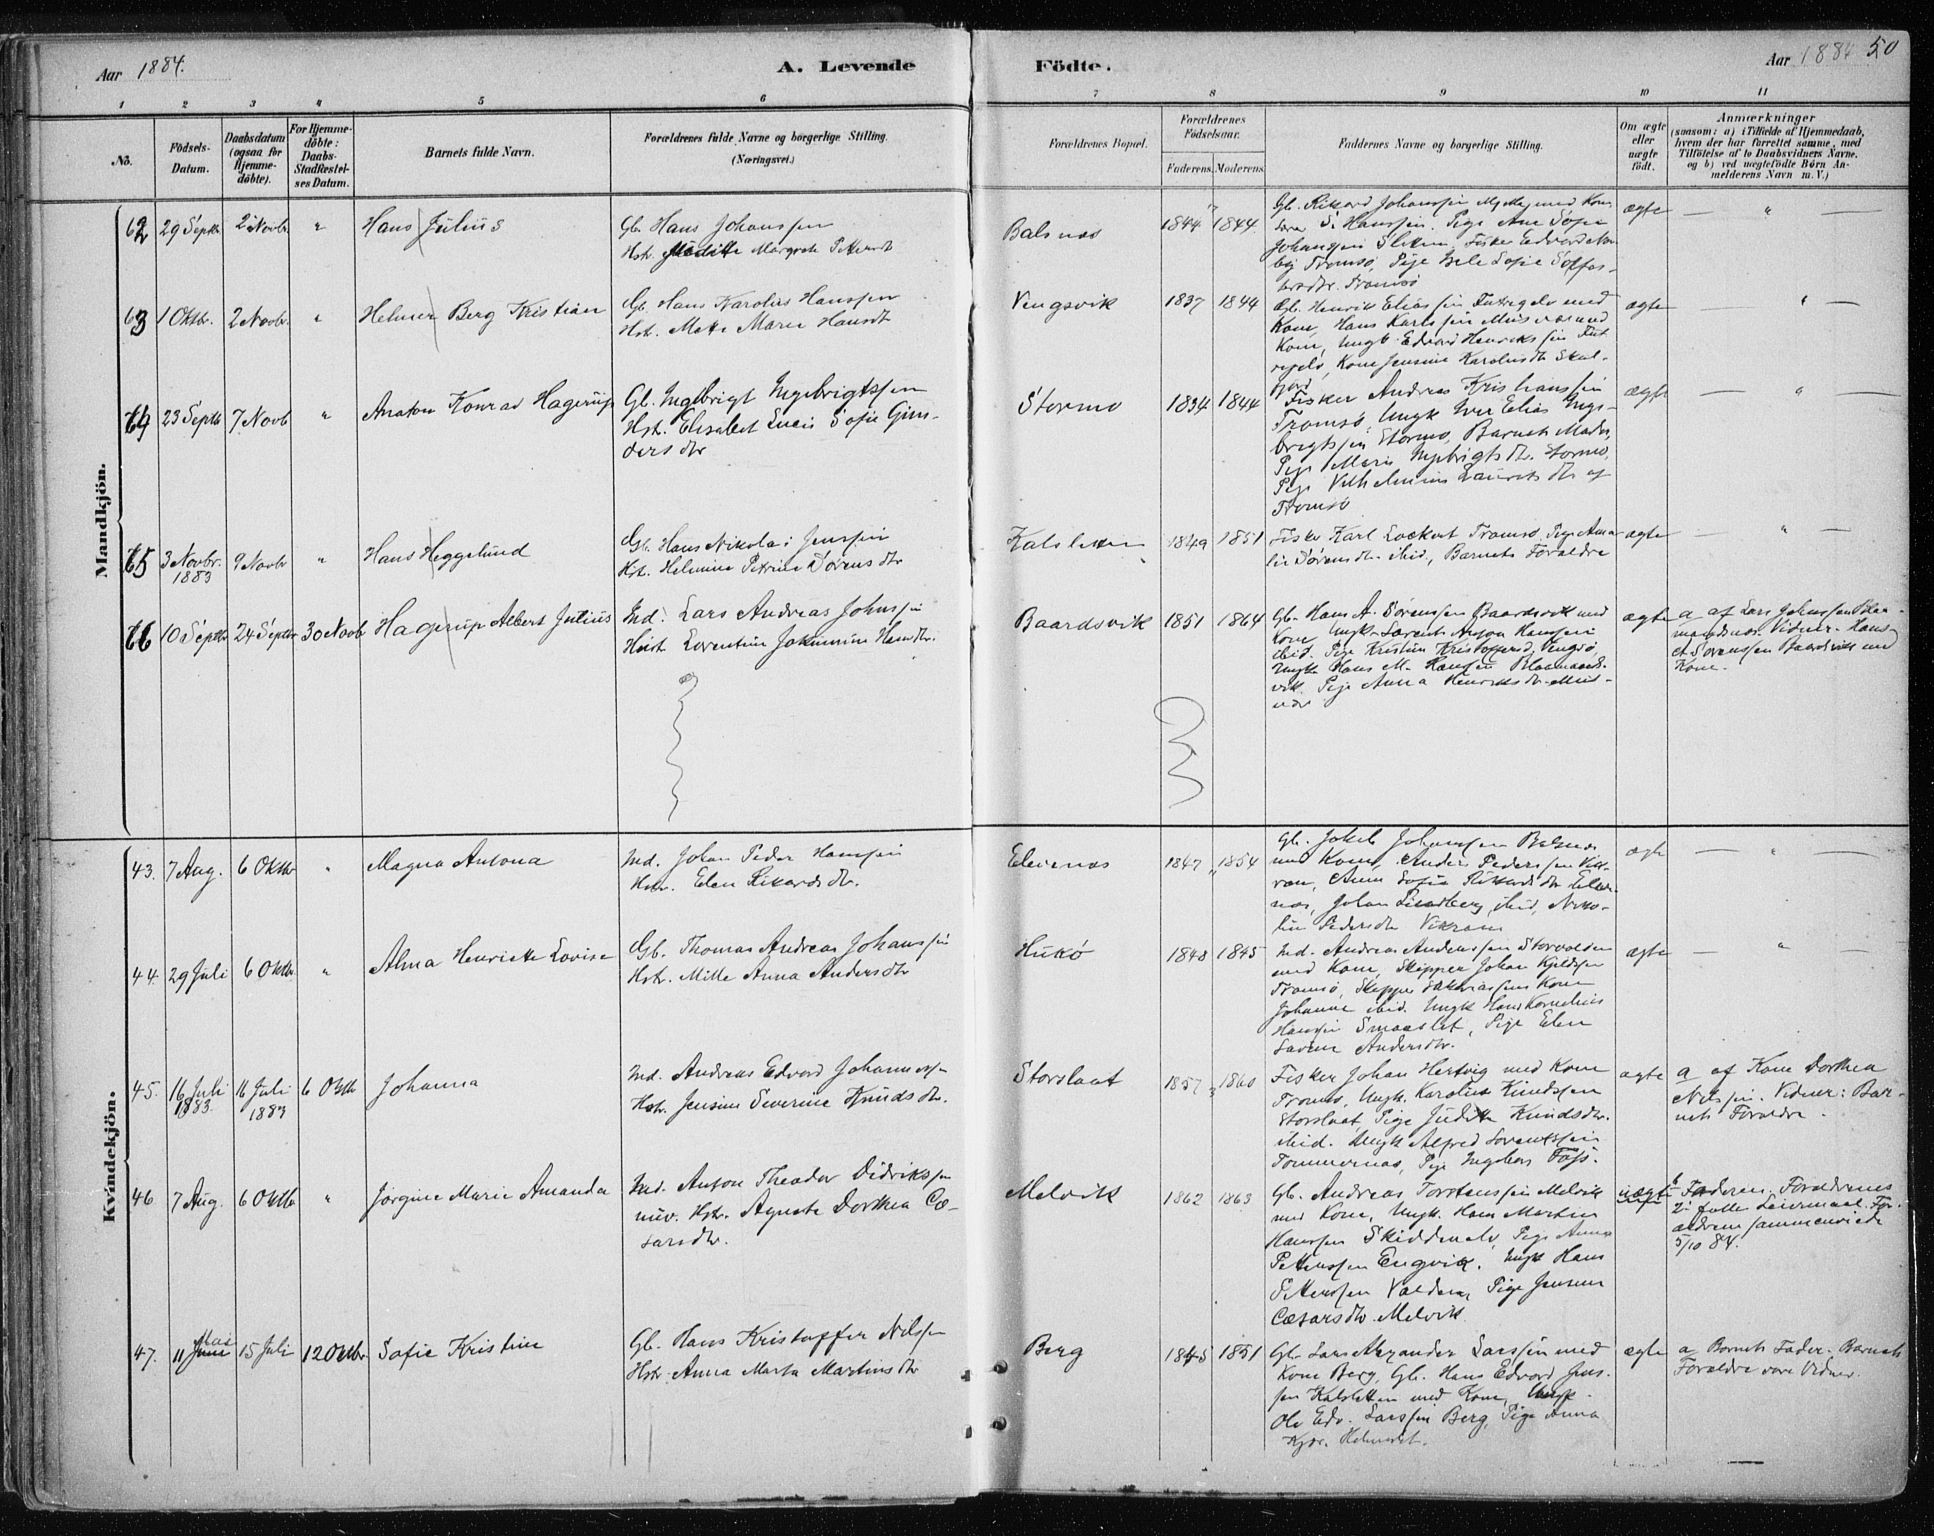 Aar 1884.
A. Levende
Födte.
Aar 1884
50
1 2 3 4 5 6 7 8 9 10 11
No.
Födsels-
Datum.
Daabsdatum
(ogsaa for
Hjemme-
döbte).
For Hjemme-
döbte:
Daabs-
Stadfestel-
ses Datum.
Barnets fulde Navn.
Forældrenes fulde Navne og borgerlige Stilling.
(Næringsvei.)
Forældrenes Bopæl.
Forældrenes
Födselsaar.
Faderens. Moderens.
Faddernes Navne og borgerlige Stilling.
Om ægte
eller
uægte
födt.
Anmærkninger
(saasom: a) i Tilfælde af Hjemmedaab,
hvem der har forrettet samme, med
Tilföielse af to Daabsvidners Navne.
og b) ved uægtefödte Börn An-
melderens Navn m. V.)
Mandkjön.
62 29 Septbr 2 Novbr. " Hans Julius
Gb. Hans Johanssen
Hst. Margrete
Balsnes 1844 1844
Gb. Rikard Johanssen med Kone
Hanssen. Pige Ane Sofie
Johanssen Fisker Edvard
Tromsø, Pige Sofie
Tromsø
ægte — " —
63 1 Oktbr. 2 Novbr. " Helmer Berg Kristian
Gb. Hans Karolius Hanssen
Hst. Mette Marie Hansdt
Vengsvik 1837 1844
Gb. Henrik Eliassen med
Kone, Hans Karlssen Musvær med
Kone, Ungk. Edvard Henrikssen
Kone Jensine Karolusdtr
ægte — " —
64 23 Septbr 7 Novb " Anaton Konrad Hagerup
Gb. Ingebrigt Ingebrigtssen
Hst. Elisabet Sofie Gun-
dersdtr
Stormo 1834 1844
Fisker Andreas Kristianssen
Tromsø, Ungk Iver Elias Inge-
brigtssen Stormo, Barnets Moder,
Pige Marie Ingebrigtsdtr. Stormo,
Pige Vilhelmine Lauritsdtr af
Tromsø
ægte — " —
65 3 Novbr. 9 Novbr " Hans Heggelund
1883
Gb. Hans Nikolai Jenssen
Hst. Helmine Petrine Sørensdtr
Kalsletten 1849 1851
Fisker Karl Tromsø, Pige Ama-
lie Sørensdtr ibid, Barnets Forældre
ægte — " —
66 10 Septbr 24 Septbr 30 Novb Hagerup Albert Julius
Ind. Lars Andreas Johnssen
Hust. Lorentine Jakumine Hansdtr.
Baardsvik 1851 1864
Gb. Hans A. Sørenssen Baardsvik med
Kone Ungk. Anton Hanssen
ibid. Pige Kristine
Ungk Hans M. Hanssen
vik Pige Anna Henriksdtr Mus-
vær
ægte
a af Lars Johnssen Blaa-
mandsnes. Vidner. Hans
A Sørenssen Baardsvik med
Kone.
Kvindekjön.
43. 7 Aug. 6 Oktbr " Magna Antona
Ind. Johan Peder Hanssen
Hst. Elen Rikardsdtr.
Elvenes 1847 1854
Gb. Jakob Johanssen Balsnes
med Kone, Anders Pederssen Vik-
ran, Anne Sofie Rikkardsdtr Elve-
nes, Johan Lindberg ibid, Niko-
line Pedersdtr Vikran
ægte — " —
44. 29 Juli 6 Oktbr " Alma Henriette Lovise
Gb. Thomas Andreas Johanssen
Hst. Mille Anna Andersdtr
Hukø 1848 1845
Ind. Andreas Anderssen
med Kone, Skipper Johan Kjeldsen
Tromsø, Skipper Kone
Johanne ibid. Ungk Hans Kornelius
Hanssen Smaaslet, Pige Elen
Andersdtr.
ægte — " —
45. 16 Juli 16 Juli 6 Oktb Johanna
1883. 1883
Ind. Andreas Edvard Johannessen
Hst. Jensine Severine Knudsdtr.
Storslaat 1857 1860
Fisker Johan Hertvig med Kone
Tromsø, Ungk. Karolius Knudssen
Storslaat, Pige Judith Knudsdtr.
ibid. Ungk Alfred Lorentssen
Tommernes, Pige Ingebor Foss.
ægte
a af Kone Dorthea
Nilssen. Vidner: Bar-
nets Forældre.
46 7 Aug. 6 Oktbr " Jørgine Marie Amanda
Ind. Anton Theodor Didrikssen
nuv. Hst. Agnete Dorthea Cæ-
sarsdtr.
Melvik 1862 1863
Gb. Andreas Torstenssen Melvik
med Kone, Ungk. Hans Martin
Hanssen Skiddenelv, Pige Anna
Petterssen Engvik. Ungk Hans
Petterssen Valdnes, Pige Jensine
Cæsarsdtr Melvik
uægte
b Faderen. Forældrenes
2' fulle Leiermaal. For-
ældrene sammenviede
5/10 84.
47. 11 Mai 15 Juli 12 Oktbr. Sofie Kristine
Gb. Hans Kristoffer Nilssen
Hst. Anna Marta Martinsdtr
Berg 1845 1851
Gb. Lars Alexander Larssen med
Kone Berg, Gb. Hans Edvard Jens-
sen Kalsletten med Kone, Ungk.
Ole Edv. Larssen Berg, Pige Anna
ægte
a Barnets Fader. Barnets
Forældre vare Vidner.